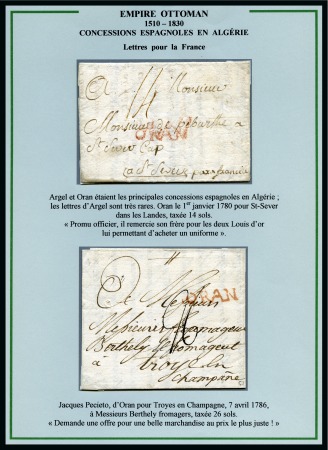 EMPIRE OTTOMAN
1510 – 1830
CONCESSIONS ESPAGNOLES EN ALGÉRIE
Lettres pour la France
A Monsieur
Monsieur de
ORAN
St Sever Cap
a St Sever par
Argel et Oran étaient les principales concessions espagnoles en Algérie ;
les lettres d'Argel sont très rares. Oran le 1er janvier 1780 pour St-Sever
dans les Landes, taxée 14 sols.
« Promu officier, il remercie son frère pour les deux Louis d'or
lui permettant d'acheter un uniforme ».
A Messieurs
ORAN
Messieurs
Berthely fromageurs
troyes
Champane
Jacques Pecieto, d'Oran pour Troyes en Champagne, 7 avril 1786,
à Messieurs Berthely fromagers, taxée 26 sols.
« Demande une offre pour une belle marchandise au prix le plus juste ! »